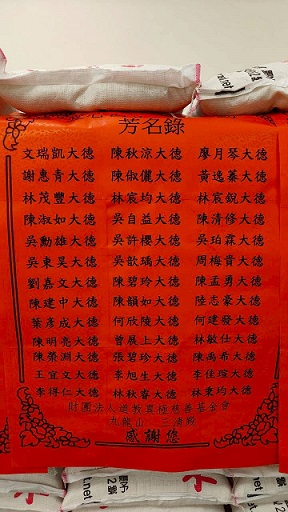 芳名錄
文瑞凱大德 陳秋涼大德 廖月琴大德
謝惠青大德 陳俶儷大德 黃逸蓁大德
林茂豐大德 林宸均大德 林宸銳大德
陳淑如大德 吳自益大德 陳清修大德
吳勳雄大德 吳許櫻大德 吳珀霖大德
吳東昊大德 吳歆瑀大德 周梅貴大德
劉嘉文大德 陳碧玲大德 陳孟勇大德
陳建中大德 陳韻如大德 陸志豪大德
葉彥成大德 何欣陵大德 何建發大德
陳明亮大德 曾展上大德 林敏仕大德
陳榮淵大德 張碧珍大德 陳禹希大德
王宜文大德 李旭生大德 李佳瑄大德
李得仁大德 林秋睿大德 林秉均大德
財團法人道教靈極慈善基金會
九龍山 三清殿
感謝您
.net
.net